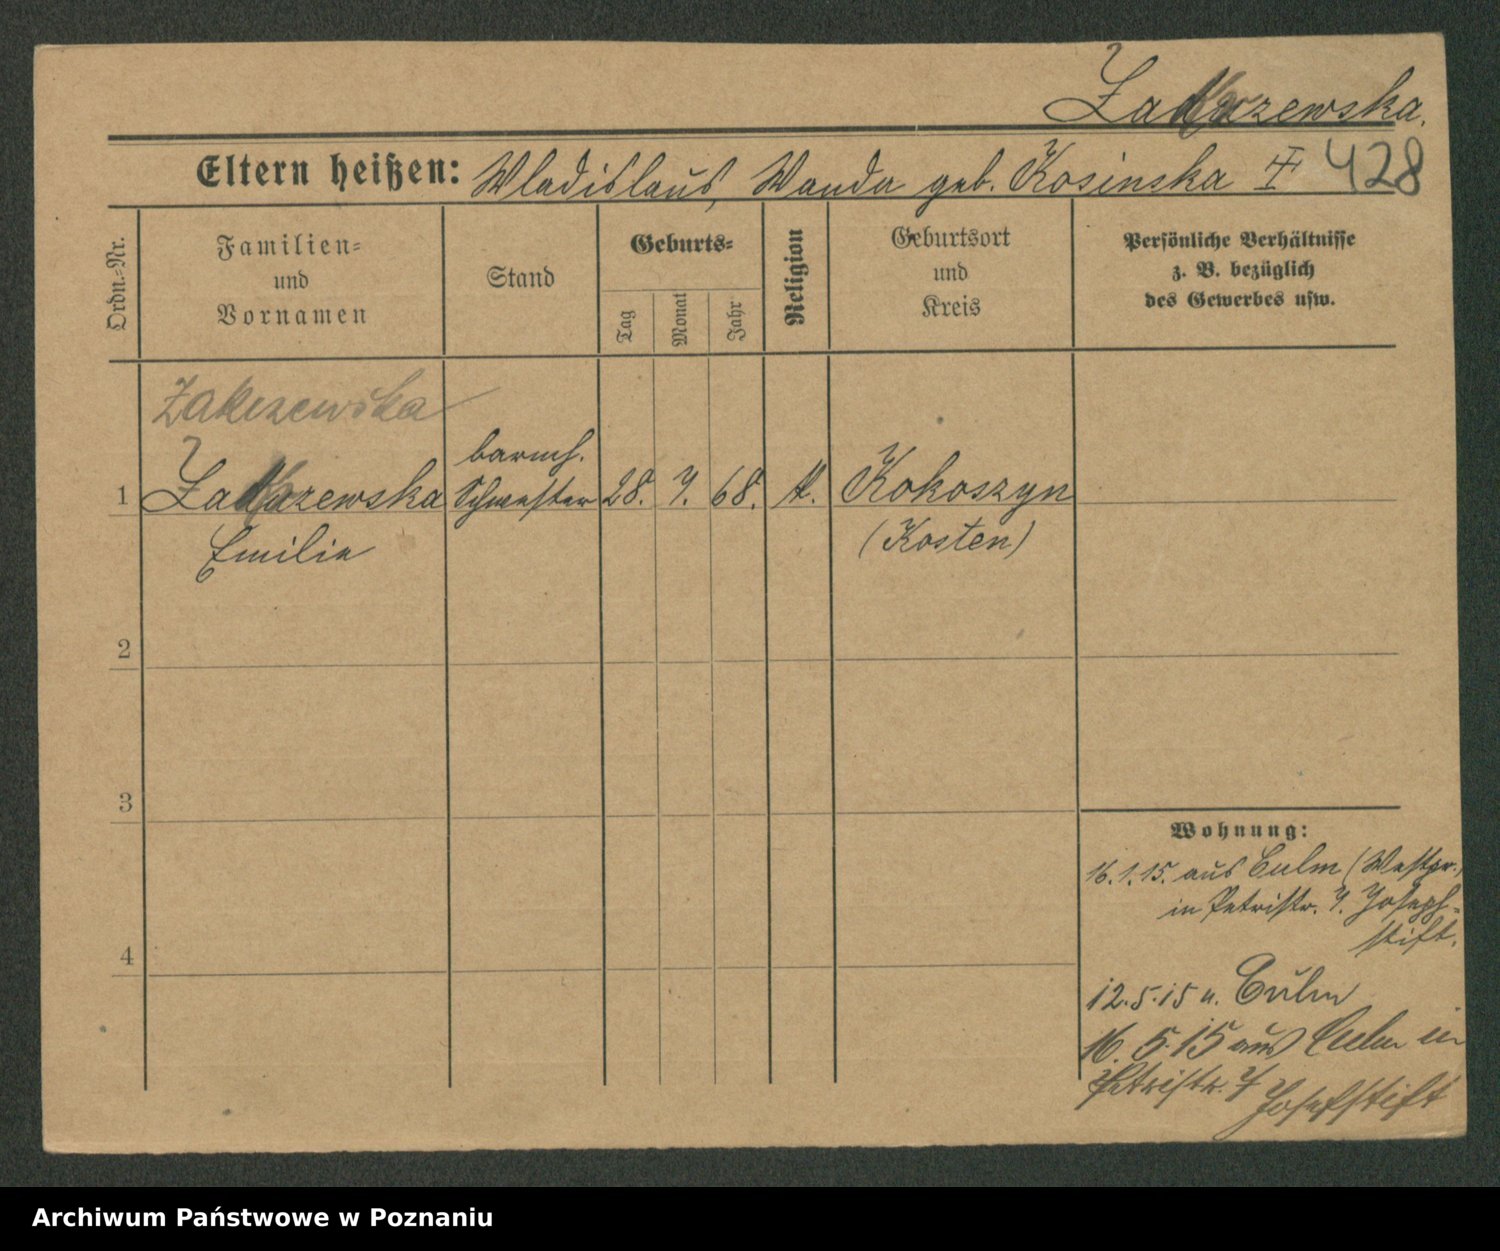 Zakrzewska.
Eltern heißen: Wladislaus, Wanda geb. Kosinska 428
Ordn.-Nr.
Familien-
und
Vornamen
Stand
Geburts-
Tag
Monat
Jahr
Religion
Geburtsort
und
Kreis
Persönliche Verhältnisse
z. B. bezüglich
des Gewerbes usw.
Zakrzewska
barmh.
1 Zakrzewska Schwester 28. 7. 68. k. Kokoszyn
Emilie (Kosten)
2
3
4
Wohnung:
16.1.15. aus Culm (Westpr.)
in Petristr. 7. Joseph-
stift.
12.5.15 n. Culm
16.5.15 aus Culm in
Petristr. 7 Josefstift
Archiwum Państwowe w Poznaniu